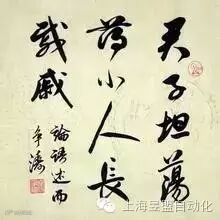 君子坦蕩
蕩小人長
戚戚
論語述而
爭濤
上海昱盟自动化